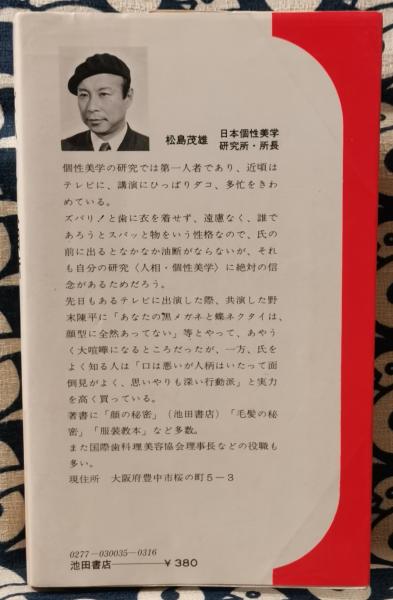 松島茂雄
日本個性美学
研究所・所長
個性美学の研究では第一人者であり、近頃は
テレビに、講演にひっぱりダコ、多忙をきわ
めている。
ズバリ!と歯に衣を着せず、遠慮なく、誰で
あろうとスパッと物をいう性格なので、氏の
前に出るとなかなか油断がならないが、それ
も自分の研究〈人相・個性美学〉に絶対の信
念があるためだろう。
先日もあるテレビに出演した際、共演した野
末陳平に「あなたの黒メガネと蝶ネクタイは、
顔型に全然あってない」等とやって、あやう
く大喧嘩になるところだったが、一方、氏を
よく知る人は「口は悪いが人柄はいたって面
倒見がよく、思いやりも深い行動派」と実力
を高く買っている。
著書に「顔の秘密」(池田書店)「毛髪の秘
密」「服装教本」など多数。
また国際歯科理美容協会理事長などの役職も
多い。
現住所 大阪府豊中市桜の町5−3
0277―030035―0316
池田書店―――¥380